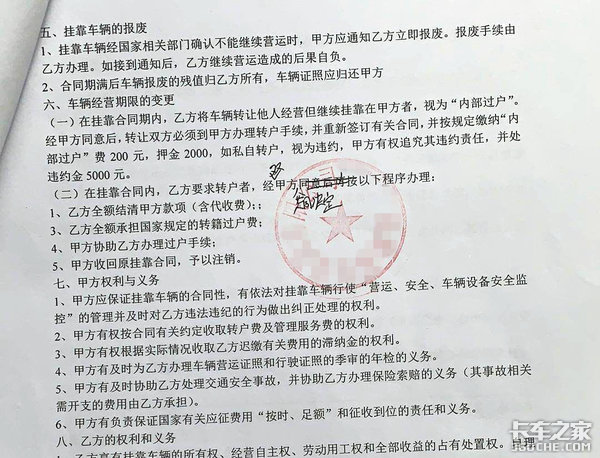 五、挂靠车辆的报废
1、挂靠车辆经国家相关部门确认不能继续营运时，甲方应通知乙方立即报废。报废手续由
乙方办理。如接到通知后，乙方继续营运造成的后果自负。
2、合同期满后车辆报废的残值归乙方所有，车辆证照应归还甲方
六、车辆经营期限的变更
（一）在挂靠合同期内，乙方将车辆转让他人经营但继续挂靠在甲方者，视为“内部过户”。
经甲方同意后，转让双方必须到甲方办理转户手续，并重新签订有关合同，并按规定缴纳“内
部过户”费 200 元，押金 2000，如私自转户，视为违约，甲方有权追究其违约责任，并处
违约金 5000 元。
（二）在挂靠合同内，乙方要求转户者，经甲方同意后并按以下程序办理：
1、乙方全额结清甲方款项（含代收费）；；
3、乙方全额承担国家规定的转籍过户费；
4、甲方协助乙方办理过户手续；
5、甲方收回原挂靠合同，予以注销。
七、甲方权利与义务
1、甲方应保证挂靠车辆的合同性，有依法对挂靠车辆行使“营运、安全、车辆设备安全监
控”的管理并及时对乙方违法违纪的行为做出纠正处理的权利。
2、甲方有权按合同有关约定收取转户费及管理服务费的权利。
3、甲方有权根据实际情况收取乙方迟缴有关费用的滞纳金的权利。
4、甲方有及时为乙方办理车辆营运证照和行驶证照的季审的年检的义务。
5、甲方有及时协助乙方处理交通安全事故，并协助乙方办理保险索赔的义务（其事故相关
需开支的费用由乙方承担）。
6、甲方有负责保证国家有关应征费用“按时、足额”和征收到位的责任和义务。
八、乙方的权利和义务
1、乙方享有挂靠车辆的所有权、经营自主权、劳动用工权和全部收益的占有处置权。自理
卡车之家
360CHE.COM